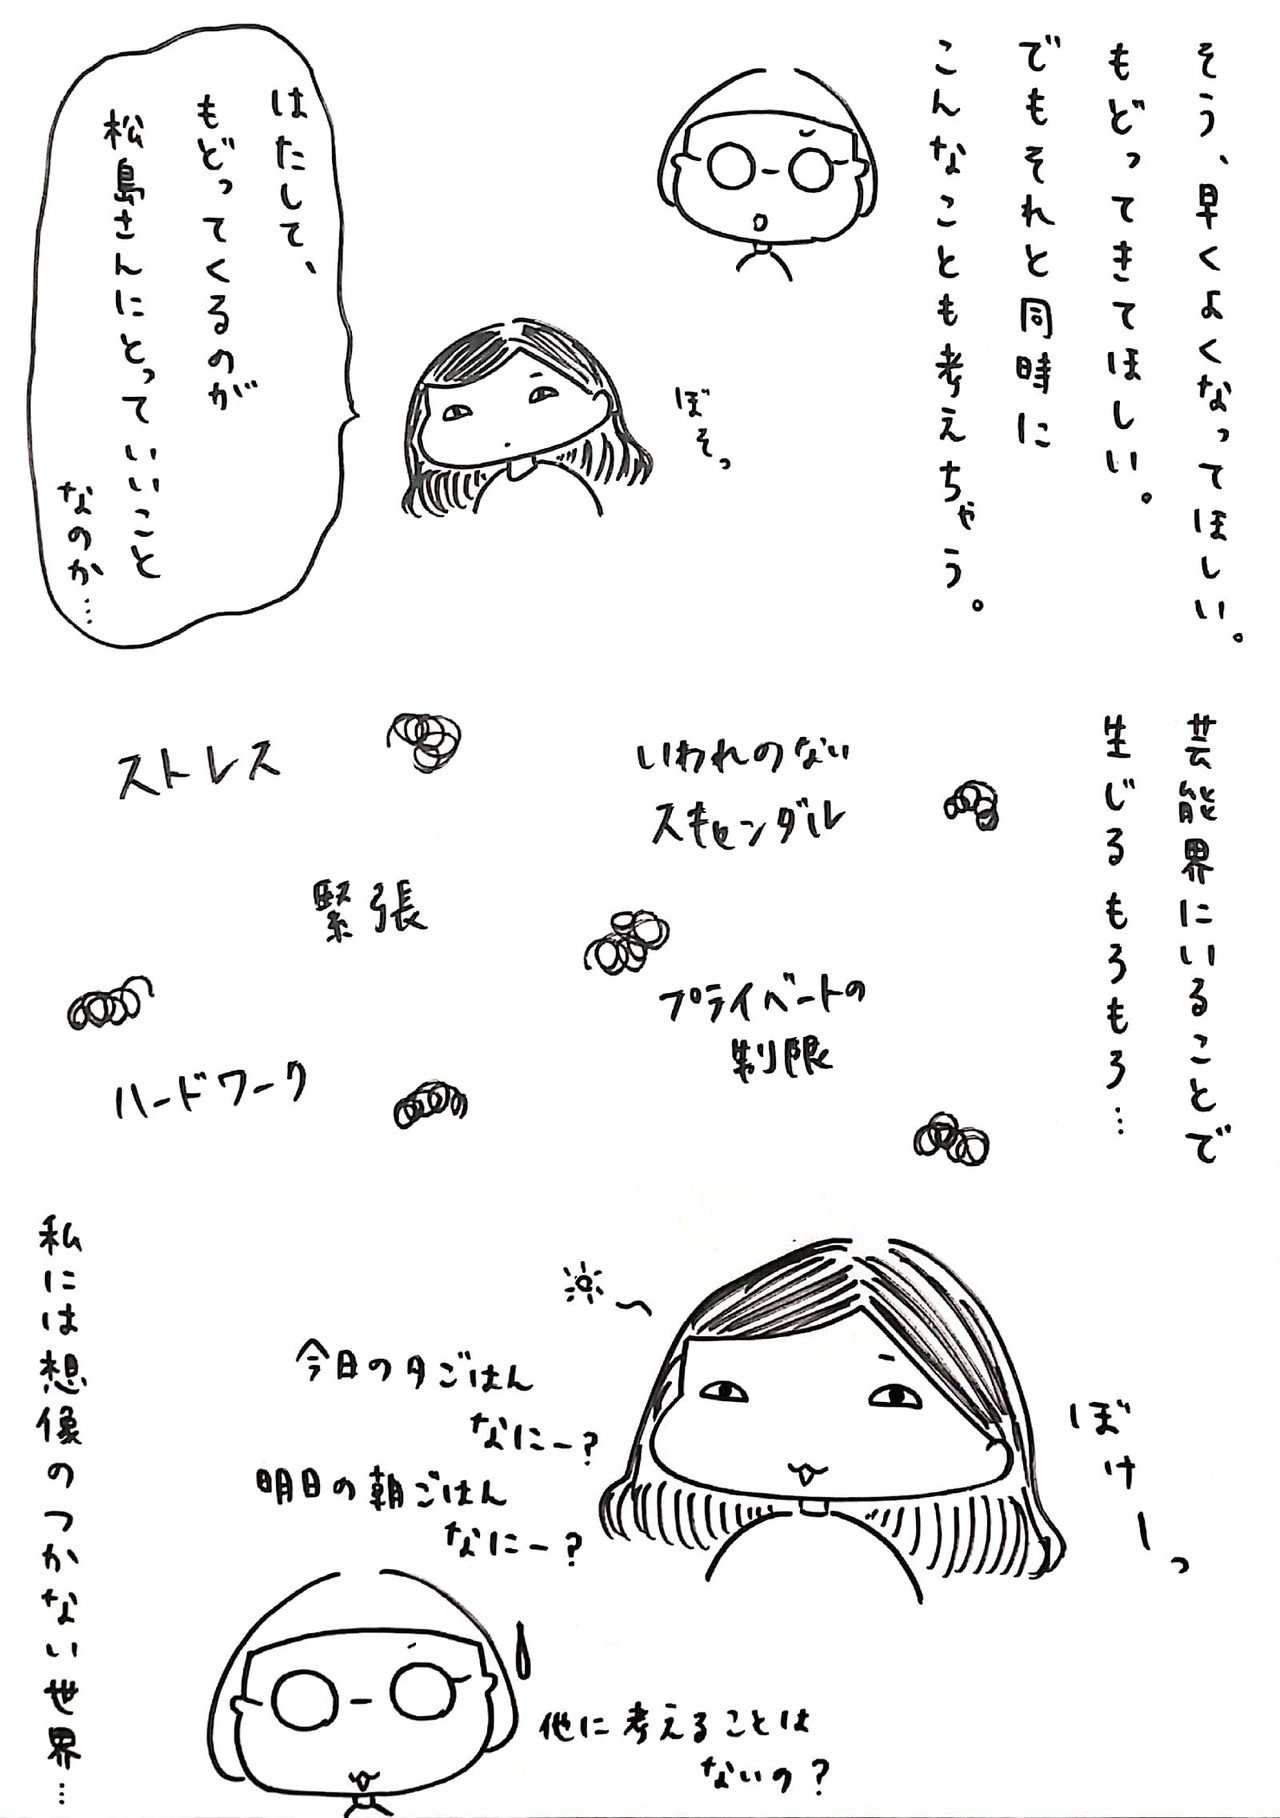 そう、早くよくなってほしい。
もどってきてほしい。
でもそれと同時に
こんなことも考えちゃう。
ぼそっ
はたして、
もどってくるのが
松島さんにとっていいこと
なのか…
芸能界にいることで
生じるもろもろ…
いわれのない
スキャンダル
ストレス
緊張
プライベートの
制限
ハードワーク
ぼけーっ
今日の夕ごはん
なにー?
明日の朝ごはん
なにー?
他に考えることは
ないの?
私には想像のつかない世界…